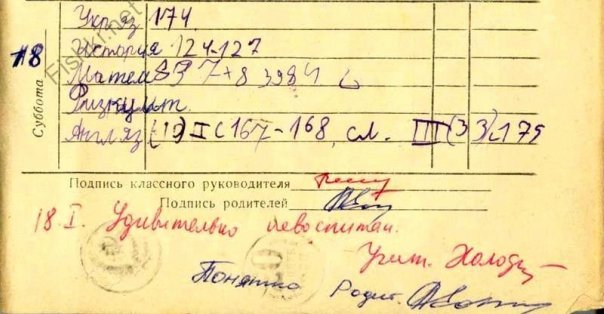 Укр яз 174
18
История 124-127
Суббота
Матем 837 + 8 398
Физкульт.
Англ яз (10) I с 167-168, сл. III (33) с 175
Подпись классного руководителя
Подпись родителей
18. I. Удивительно невоспитан.
Учит. Холод
Понятно Родит.
Fishki.net